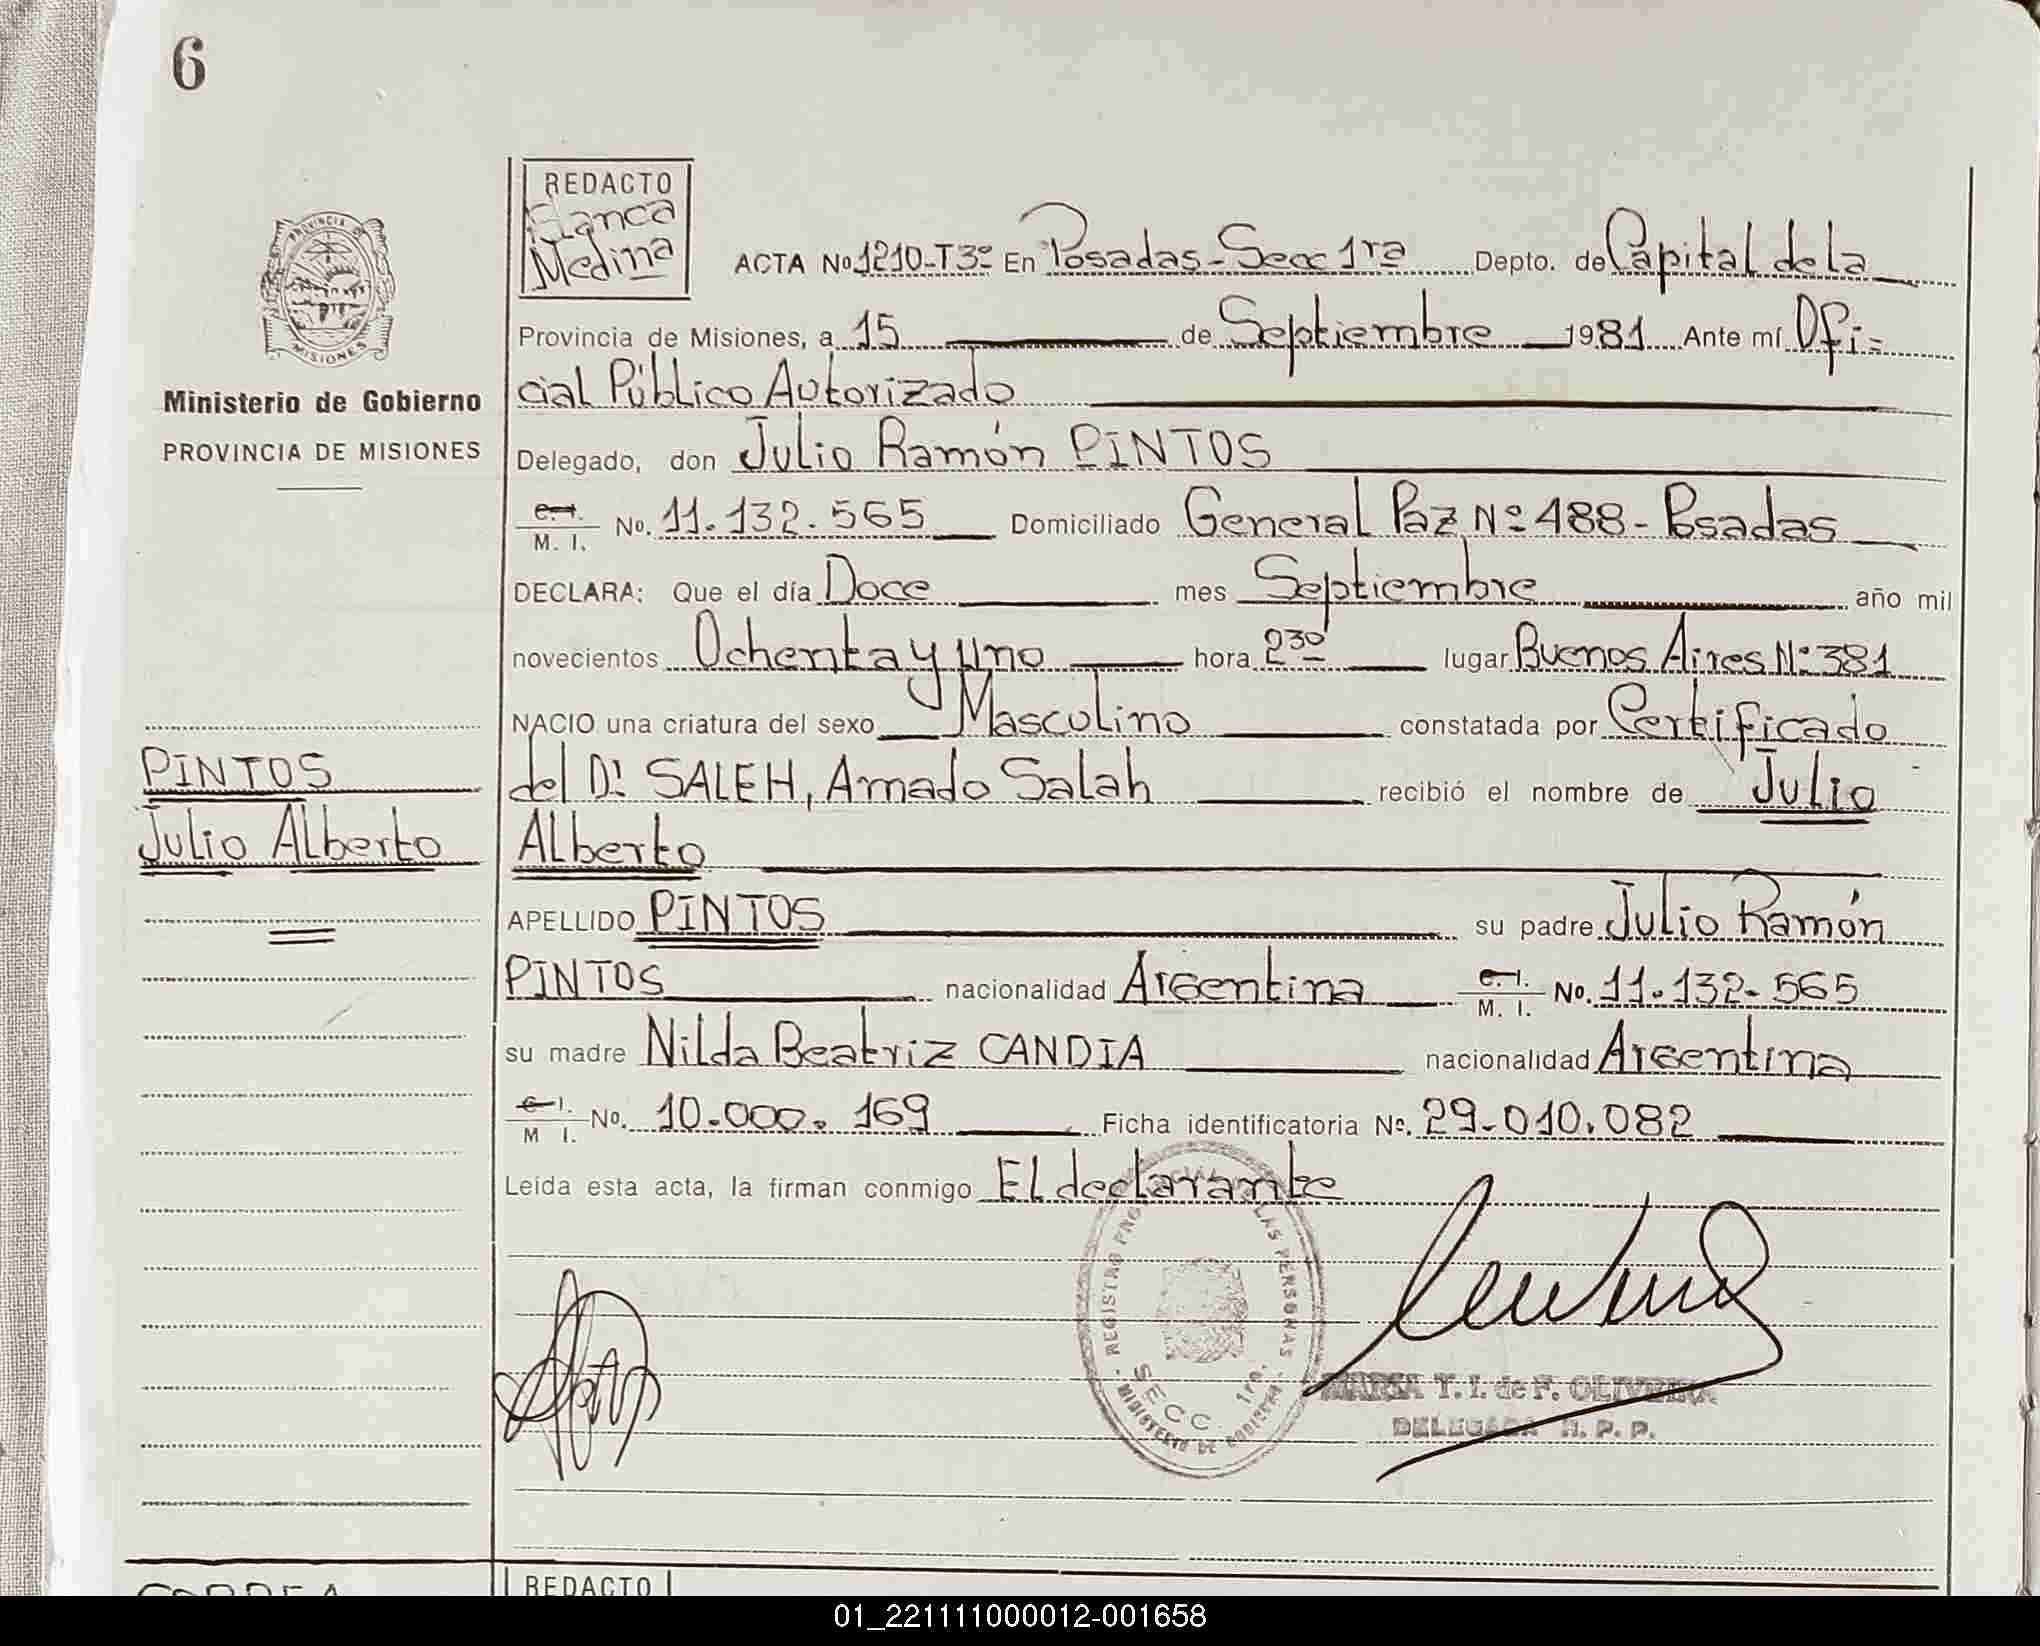 6
REDACTO
Blanca
Medina
PROVINCIA DE
MISIONES
ACTA No 1210-T3º En Posadas - Secc 1ra Depto. de Capital de la
Provincia de Misiones, a 15 de Septiembre 1981 Ante mí Ofi=
cial Público Autorizado
Ministerio de Gobierno
PROVINCIA DE MISIONES
Delegado, don Julio Ramón PINTOS
C. I.
M. I. No. 11.132.565 Domiciliado General Paz Nº 488 - Posadas
DECLARA: Que el día Doce mes Septiembre año mil
novecientos Ochenta y uno hora 2³⁰ lugar Buenos Aires Nº 381
NACIO una criatura del sexo Masculino constatada por Certificado
del Dr. SALEH, Amado Salah recibió el nombre de Julio
Alberto
PINTOS
Julio Alberto
APELLIDO PINTOS su padre Julio Ramón
PINTOS nacionalidad Argentina C. I.
M. I. No. 11.132.565
su madre Nilda Beatriz CANDIA nacionalidad Argentina
C. I.
M. I. No. 10.000.169 Ficha identificatoria Nº. 29.010.082
Leída esta acta, la firman conmigo El declarante
REGISTRO LAS PERSONAS
SECC. 1ra.
MINISTERIO DE GOBIERNO
MARIA T. I. de F. OLIVEIRA
DELEGADA R. P. P.
CORREA
REDACTO
01_221111000012-001658